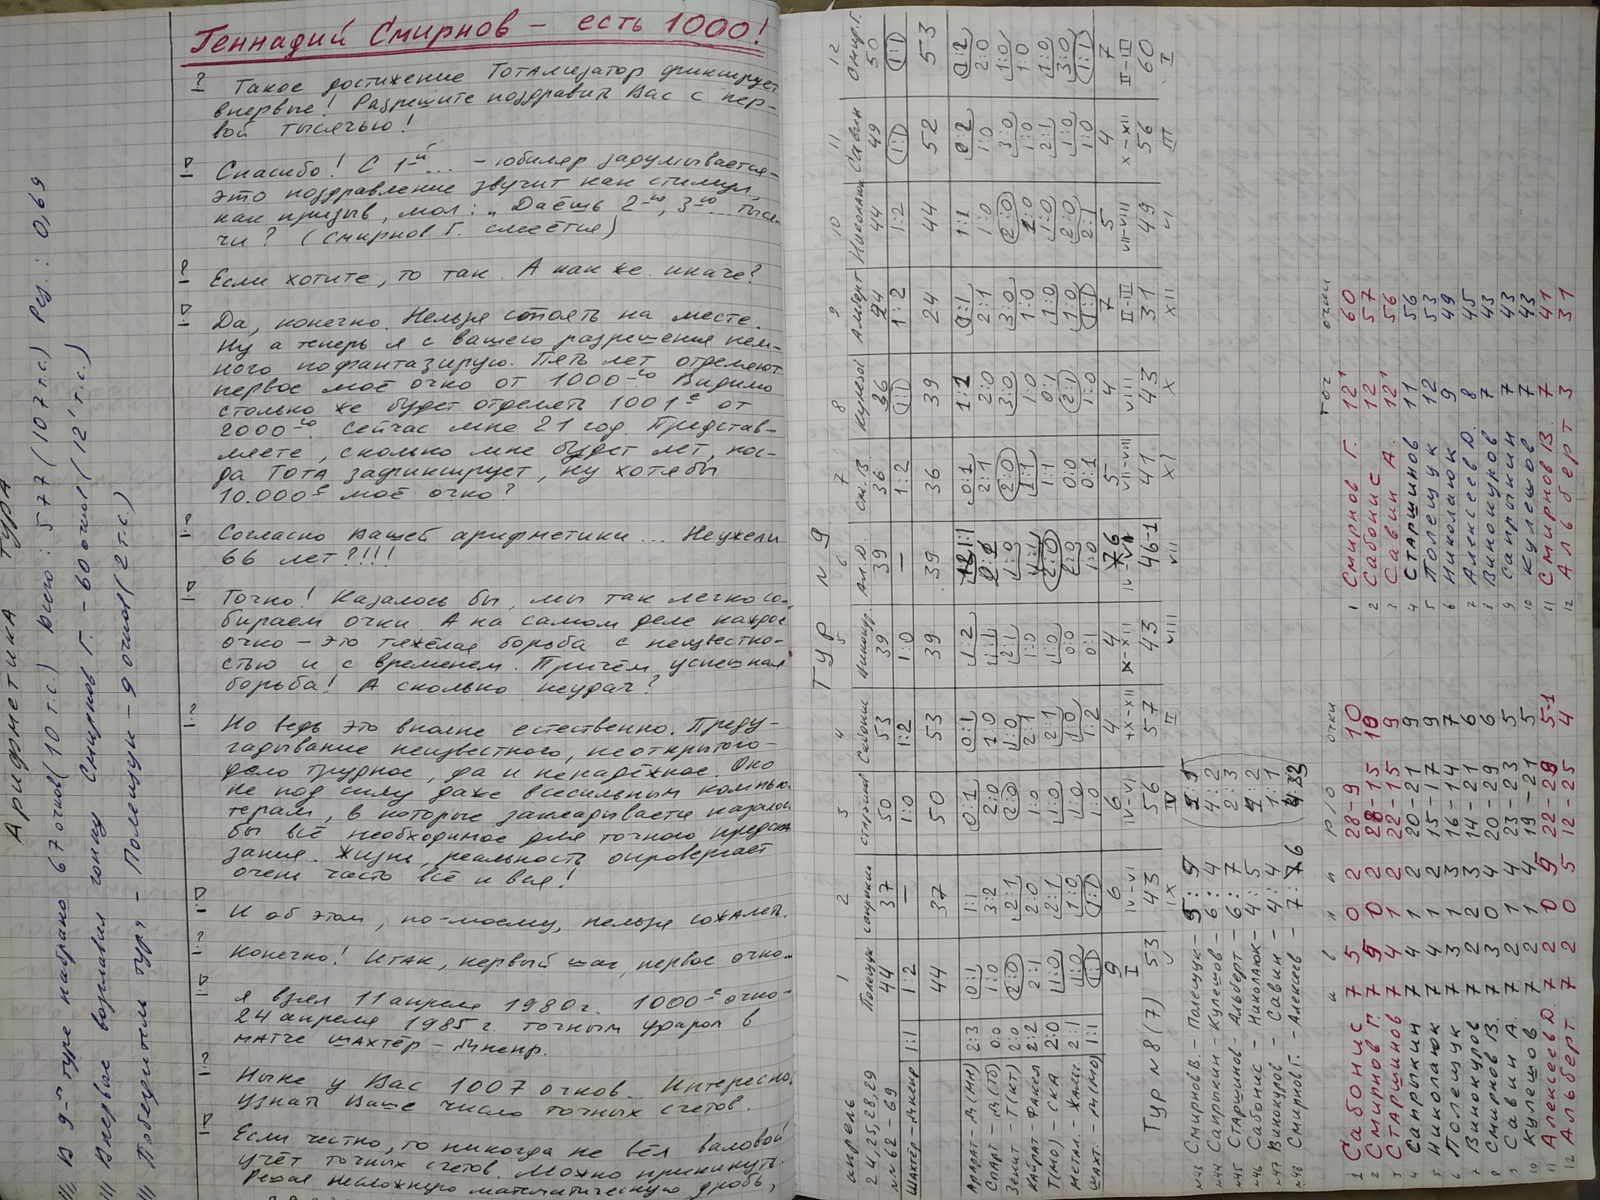 Геннадий Смирнов – есть 1000!
? Такое достижение Тотализатор фиксирует
впервые! Разрешите поздравить Вас с пер-
вой тысячью!
! Спасибо! С 1-й... – юбиляр задумывается –
это поздравление звучит как стимул,
как призыв, мол: "Даёшь 2-ую, 3-ую... тыся-
чи? (Смирнов Г. смеётся)
? Если хотите, то так. А как же иначе?
! Да, конечно. Нельзя стоять на месте.
Ну а теперь я с вашего разрешения нем-
ного пофантазирую. Пять лет отделяют
первое моё очко от 1000-го. Видимо
столько же будет отделять 1001-е от
2000-го. Сейчас мне 21 год. Представ-
ляете, сколько мне будет лет, ког-
да Тото зафиксирует, ну хотя бы
10.000-е моё очко?
? Согласно Вашей арифметики... Неужели
66 лет?!!!
! Точно! Казалось бы, мы так легко со-
бираем очки. А на самом деле каждое
очко – это тяжёлая борьба с неизвестно-
стью и с временем. Причём, успешная
борьба! А сколько неудач?
? Но ведь это вполне естественно. Преду-
гадывание неизвестного, неоткрытого –
дело трудное, да и ненадёжное. Оно
не под силу даже всесильным компью-
терам, в которые закладывается казалось
бы всё необходимое для точного предска-
зания. Жизнь, реальность опровергает
очень часто всё и вся!
! И об этом, по-моему, нельзя сожалеть.
? Конечно! Итак, первый шаг, первое очко..
! Я взял 11 апреля 1980 г. 1000-е очко –
24 апреля 1985 г. точным ударом в
матче Шахтёр – Днепр.
? Ныне у Вас 1007 очков. Интересно
узнать Ваше число точных счетов.
! Если честно, то никогда не вёл валовой
учёт точных счетов. Можно прикинуть.
Решая несложную математическую дробь,
Арифметика тура
!!! В 9-м туре набрано 67 очков (10 т.с.) Всего: 577 (107 т.с.) Рез.: 0,69
!!! Впервые возглавил гонку Смирнов Г. – 60 очков (12' т.с.)
!!! Победитель тура – Полещук – 9 очков (2 т.с.)
ТУР N 9
апрель 1 2 3 4 5 6 7 8 9 10 11 12
24,25,28,29 Полещук Сапрыкин Старшинов Сабонис Винокур. Ал.D. См.В. Кулешов Альберт Николаюк Савин Смир.Г.
NN 62 – 69 44 37 50 53 39 39 36 36 24 44 49 50
Шахтёр – Днепр 1:1 1:2 — 1:0 1:2 1:0 — 1:2 1:1 1:2 1:2 1:1 1:1
44 37 50 53 39 39 36 39 24 44 52 53
Арарат – Д(Мн) 2:3 0:1 1:1 0:1 0:1 1:2 1:1 0:1 1:1 0:1 1:1 0:2 1:2
Спарт – Д(Тб) 0:0 1:0 3:2 2:0 1:0 1:1 2:1 2:0 2:1 1:0 1:0 2:0
Зенит – Т(Кт) 2:0 2:0 2:1 2:0 1:0 2:1 1:0 2:0 3:0 3:0 2:0 3:0 1:0
Кайрат – Факел 2:2 2:1 2:0 1:0 2:1 1:0 1:1 1:1 1:0 1:0 1:0 1:0 1:0
Т(Мо) – СКА 2:0 1:0 2:1 1:0 2:1 1:0 2:0 1:1 0:1 1:0 1:0 2:1 1:0
Метал. – Жальг. 2:1 1:0 1:0 1:0 1:0 0:0 0:0 2:1 1:0 2:0 1:0 3:0
Шахт. – Д(Мо) 1:1 1:1 1:1 1:0 1:2 0:1 1:0 0:1 1:0 1:1 2:1 1:0 1:1
9 6 6 4 4 5 4 7 5 4 7
I IV–VI IV–VI X–XII VIII II–III VII–VIII X–XII II–III
53 43 56 57 43 46-1 41 43 31 49 56 60
V IX IV II VIII VII X XII VI III I
ТУР N 8 (7)
N43 Смирнов В. – Полещук – 9:9
N44 Сапрыкин – Кулешов – 6:4 4:2
N45 Старшинов – Альберт – 6:7 2:3
N46 Сабонис – Николаюк – 4:5
N47 Винокуров – Савин – 4:4 1:1
N48 Смирнов Г. – Алексеев – 7:6
и в н п р/о очки
1 Сабонис 7 5 0 2 28–9 10
2 Смирнов Г. 7 5 0 2 28–15 10
3 Старшинов 7 4 1 2 22–15 9
4 Сапрыкин 7 4 1 2 20–21 9
5 Николаюк 7 4 1 2 15–17 9
6 Полещук 7 3 1 3 16–14 7
7 Винокуров 7 2 2 3 14–21 6
8 Смирнов В. 7 3 0 4 20–29 6
9 Савин А. 7 2 1 4 23–23 5
10 Кулешов 7 2 1 4 19–21 5
11 Алексеев D. 7 2 0 5 22–28 5-1
12 Альберт 7 2 0 5 12–25 4
точ. очки
1 Смирнов Г. 12' 60
2 Сабонис 12 57
3 Савин А. 12' 56
4 Старшинов 11 56
5 Полещук 12 53
6 Николаюк 9 49
7 Алексеев D. 8 45
8 Винокуров 7 43
9 Сапрыкин 7 43
10 Кулешов 7 43
11 Смирнов В. 7 41
12 Альберт 3 31